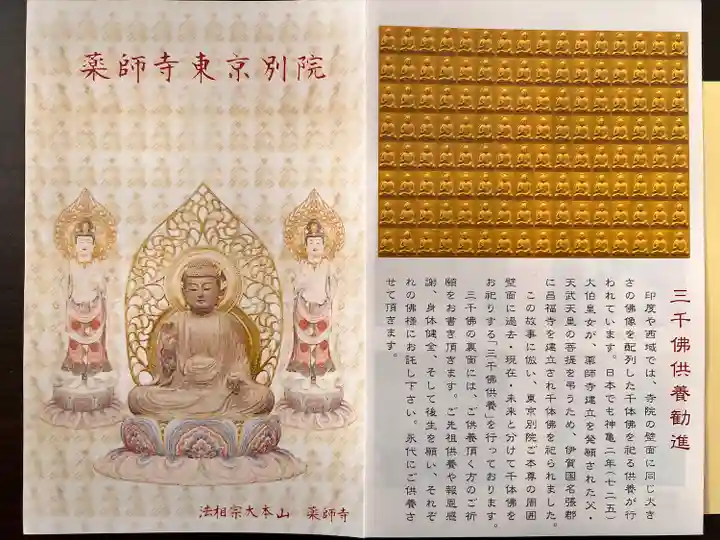 薬師寺東京別院
法相宗大本山　薬師寺
三千佛供養勧進
印度や西域では、寺院の壁面に同じ大き
さの佛像を配列した千体佛を祀る供養が行
われています。日本でも神亀二年(七二五)
大伯皇女が、薬師寺建立を発願された父・
天武天皇の菩提を弔うため、伊賀国名張郡
に昌福寺を建立され千体佛を祀られました。
この故事に倣い、東京別院ご本尊の周囲
壁面に過去・現在・未来と分けて千体佛を
お祀りする「三千佛供養」を行っております。
三千佛の裏面には、ご供養頂く方のご祈
願をお書き頂きます。ご先祖供養や報恩感
謝、身体健全、そして後生を願い、それぞ
れの佛様にお託し下さい。永代にご供養さ
せて頂きます。